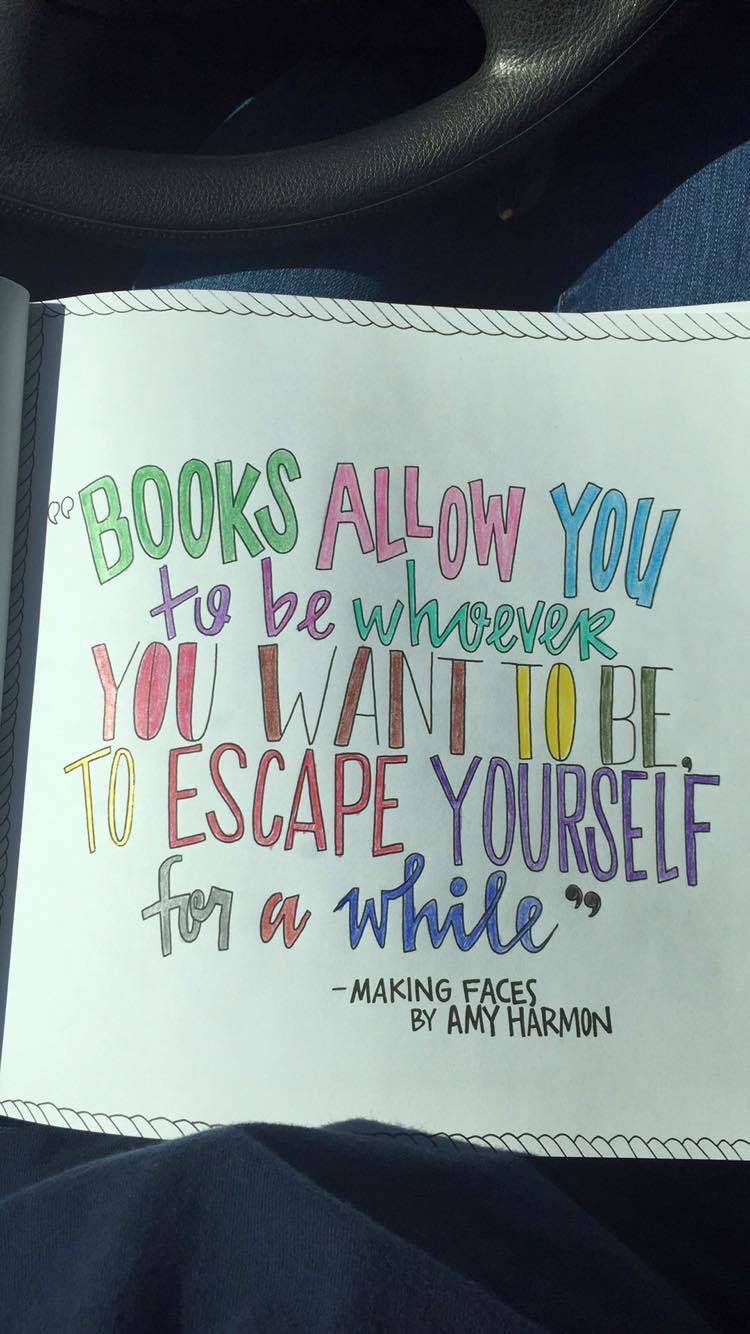 “BOOKS ALLOW YOU
to be whoever
YOU WANT TO BE,
TO ESCAPE YOURSELF
for a while”
– MAKING FACES
BY AMY HARMON